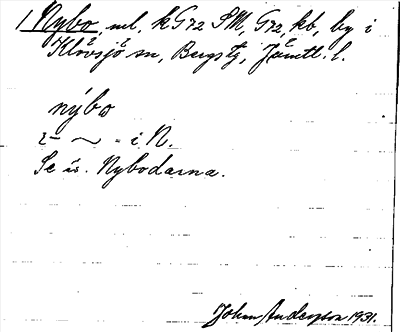 1 Nybo, ml. k G72 SM, G72, kb, by i
Klövsjö sn, Bergs tg, Jämtl. l.
nýbo
i N.
Se is. Nybodarna.
Johan Anderzson 1931.